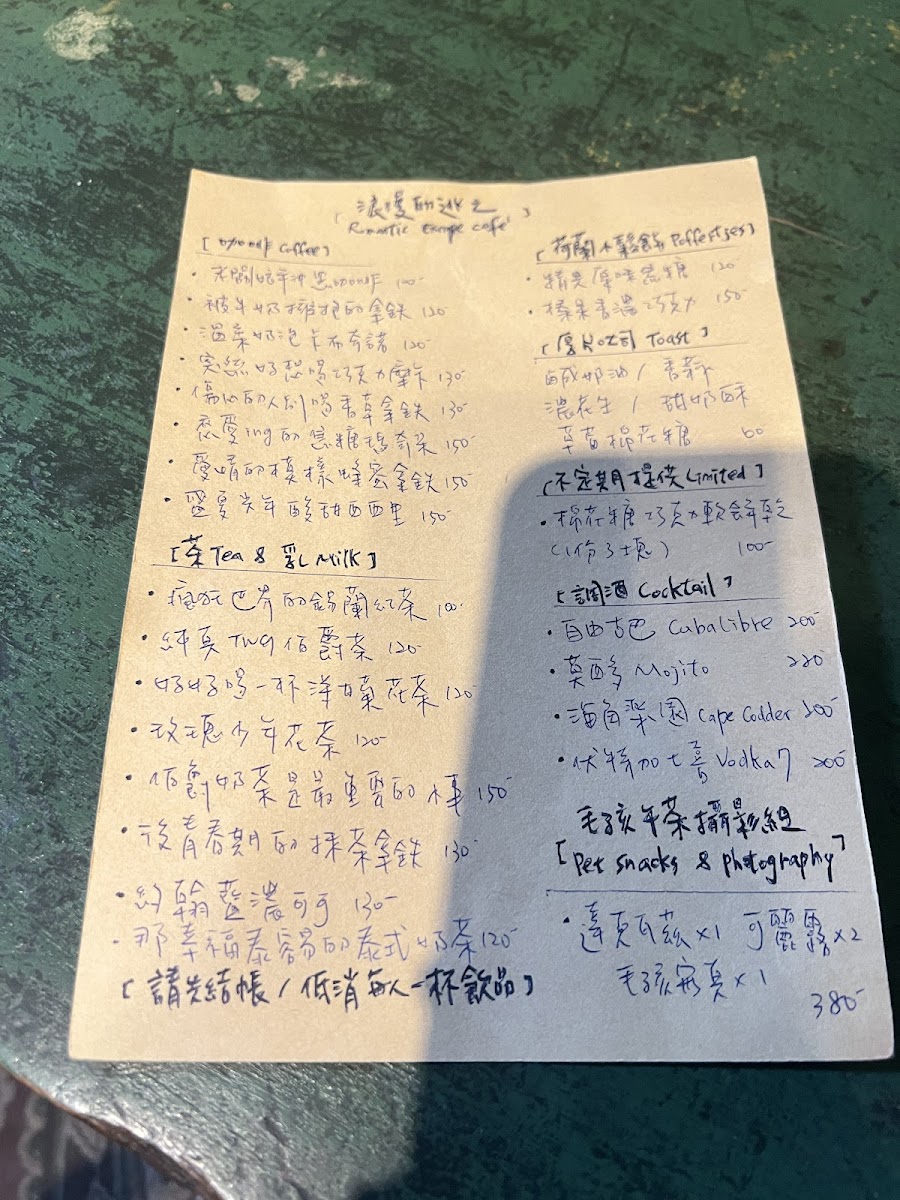 「浪漫的逃之」
Romantic Escape café
[ 咖啡 Coffee]
黑咖啡 100-
被牛奶擁抱的拿鐵 120-
溫柔奶泡卡布奇諾 120-
突然好想喝巧克力摩卡 130-
傷心的人別喝香草拿鐵 130-
戀愛ing的焦糖瑪奇朵 150-
愛情的模樣蜂蜜拿鐵 150-
盛夏光年酸甜西西里 150-
[茶 Tea & 乳 Milk]
瘋狂世界的錫蘭紅茶 100-
純真 TWG 伯爵茶 120-
好好喝一杯洋甘菊花茶 120
玫瑰少年花茶 120-
伯爵奶茶是最重要的小事 150-
後青春期的抹茶拿鐵 130-
約翰藍濃可可 130-
那幸福泰容易的泰式奶茶 120-
[ 請先結帳 / 低消每人一杯飲品 ]
[ 荷蘭小鬆餅 Poffertjes]
精美原味蜜糖 120-
榛果香濃巧克力 150-
[ 厚片吐司 Toast ]
鹹奶油 / 香蒜
濃花生 / 甜奶酥
草莓棉花糖 60
[不定期提供 Limited]
棉花糖巧克力軟餅乾
(1份3塊) 100-
[調酒 Cocktail]
自由古巴 Cubalibre 200-
莫西多 Mojito 220-
海角樂園 Cape Codder 200-
伏特加七喜 Vodka 7 200-
毛孩午茶攝影組
[Pet snacks & photography]
達克瓦茲×1 可麗露×2
毛孩寫真×1
380-